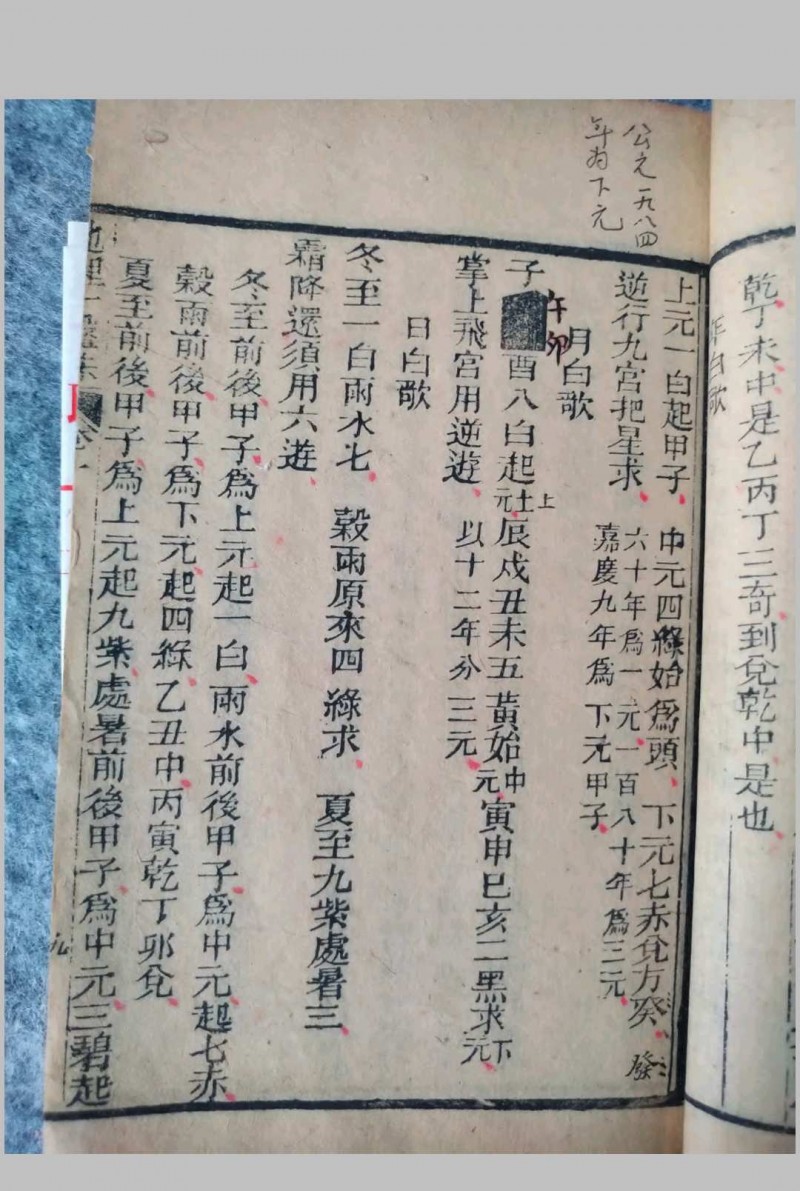 乾丁未中是乙丙丁三奇到兌乾中是也
年白歌
公元一九八四
年为下元
上元一白起甲子 中元四綠始為頭 下元七赤兌方癸 發
逆行九宮把星求 六十年為一元一百八十年為三元
嘉慶九年為下元甲子
月白歌
子午卯酉八白起上元 辰戌丑未五黃始中元 寅申巳亥二黑求下元
掌上飛宮用逆遊 以十二年分三元
日白歌
冬至一白雨水七 穀雨原來四綠求 夏至九紫處暑三
霜降還須用六遊
冬至前後甲子為上元起一白雨水前後甲子為中元起七赤
穀雨前後甲子為下元起四綠乙丑中丙寅乾丁卯兌
夏至前後甲子為上元起九紫處暑前後甲子為中元三碧起
地理 卷一
九